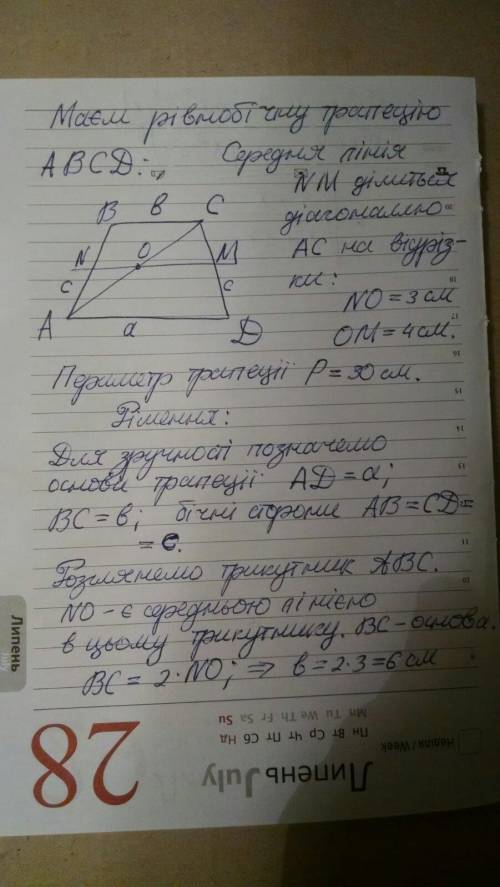 Маєм рівнобічну трапецію
ABCD: Середня лінія
NM ділиться
діагоналлю
AC на відріз-
ки:
NO = 3 см
OM = 4 см.
B в C
N O M
c c
A a D
Периметр трапеції P = 30 см.
Рішення:
Для зручності позначемо
основи трапеції AD = a;
BC = в; бічні сторони AB = CD =
= c.
Розглянемо трикутник ABC.
NO - є середньою лінією
в цьому трикутнику. BC - основа.
BC = 2·NO; ⇒ в = 2·3 = 6 см
18
17
16
15
14
13
12
11
10
Липень
July
28
Липень July
Пн Вт Ср Чт Пт Сб Нд
Mn Tu We Th Fr Sa Su
Неділя / Week